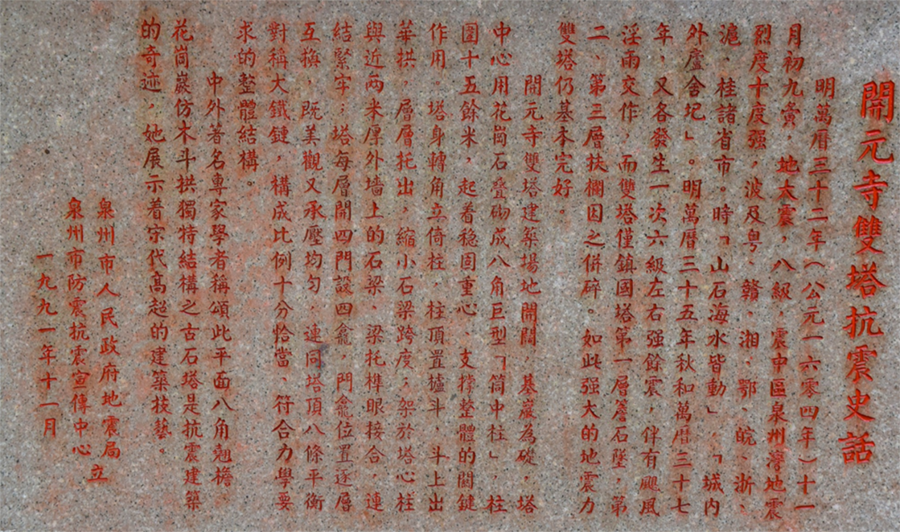 開元寺雙塔抗震史話
明萬曆三十二年（公元一六零四年）十一
月初九夤，地大震，八級，震中區泉州灣地震
烈度十度强，波及粵、贛、湘、鄂、皖、浙、
滬、桂諸省市。時「山石海水皆動」、「城内
外廬舍圮」。明萬曆三十五年秋和萬曆三十七
年，又各發生一次六級左右强餘震，伴有颶風
淫雨交作，而雙塔僅鎮國塔第一層蓋石墜，第
二、第三層扶欄因之併碎。如此强大的地震力
雙塔仍基本完好。
開元寺雙塔建築場地開闊，基巖為礎，塔
中心用花崗石叠砌成八角巨型「筒中柱」，柱
圍十五餘米，起着穩固重心、支撐整體的關鍵
作用。塔身轉角立倚柱，柱頂置櫨斗，斗上出
華拱，層層托出，縮小石梁跨度；架於塔心柱
與近兩米厚外墻上的石梁，梁托榫眼接合，連
結緊牢；塔每層開四門設四龕，門龕位置逐層
互換，既美觀又承壓均勻，連同塔頂八條平衡
對稱大鐵鏈，構成比例十分恰當、符合力學要
求的整體結構。
中外著名專家學者稱頌此平面八角翹檐
花崗巖仿木斗拱獨特結構之古石塔是抗震建築
的奇迹，她展示着宋代高超的建築技藝。
泉州市人民政府地震局
泉州市防震抗震宣傳中心
立
一九九一年十一月